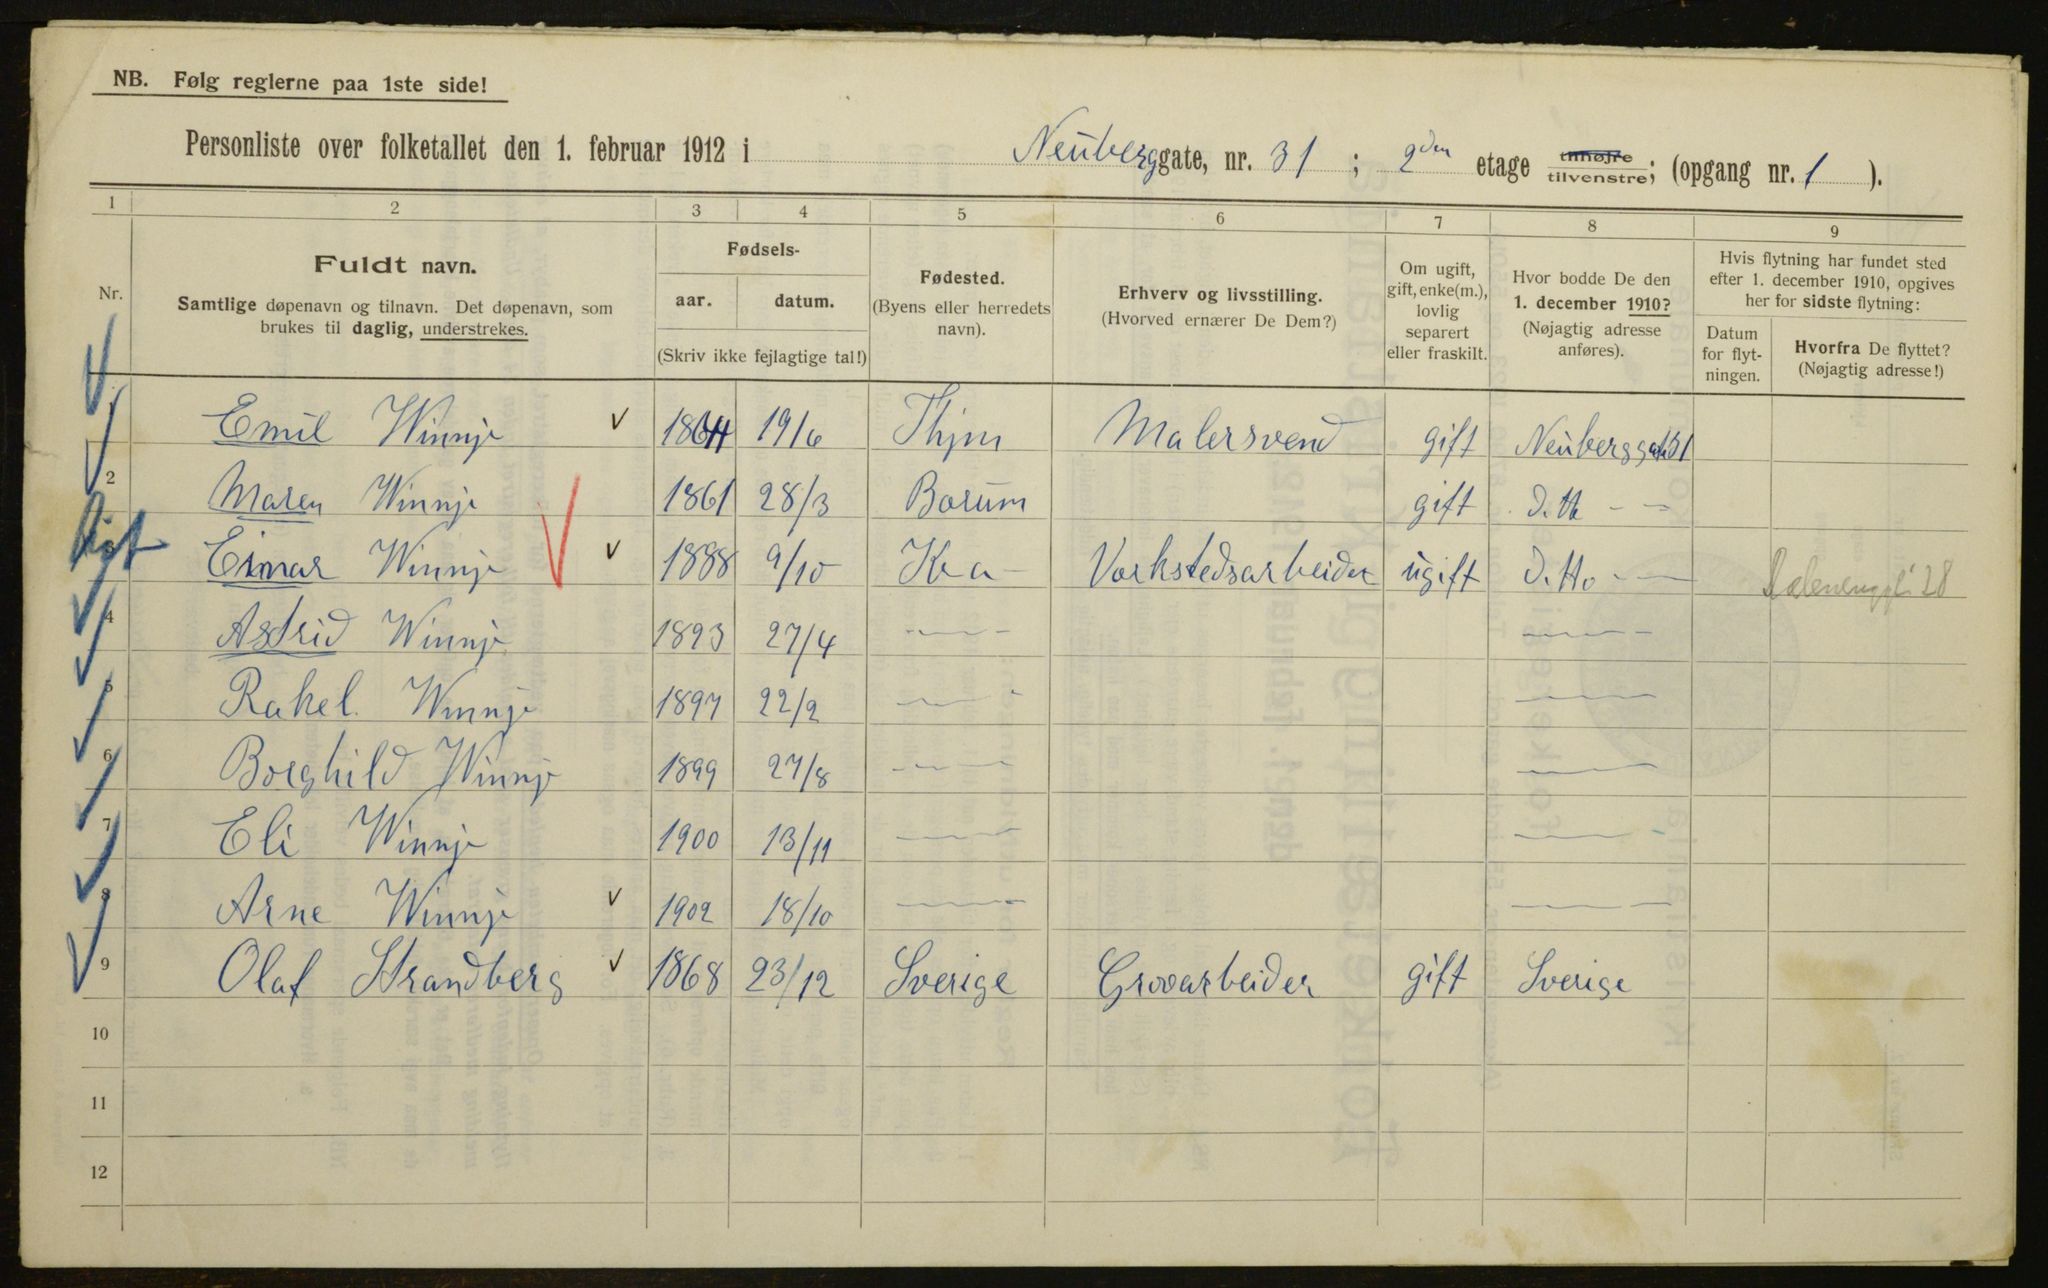 NB. Følg reglerne paa 1ste side!
Personliste over folketallet den 1. februar 1912 i Neuberggate, nr. 31 ; 2den etage tilhøjre tilvenstre; (opgang nr. 1 ).
1 2 3 4 5 6 7 8 9
Nr.
Fuldt navn.
Samtlige døpenavn og tilnavn. Det døpenavn, som
brukes til daglig, understrekes.
Fødsels-
aar. datum.
(Skriv ikke fejlagtige tal!)
Fødested.
(Byens eller herredets
navn).
Erhverv og livsstilling.
(Hvorved ernærer De Dem?)
Om ugift,
gift, enke(m.),
lovlig
separert
eller fraskilt.
Hvor bodde De den
1. december 1910?
(Nøjagtig adresse
anføres).
Hvis flytning har fundet sted
efter 1. december 1910, opgives
her for sidste flytning:
Datum
for flyt-
ningen.
Hvorfra De flyttet?
(Nøjagtig adresse!)
1 Emil Winnje 1864 19/6 Malersvend gift Neuberggat 31
2 Maren Winnje 1861 28/3 Barum gift D. tto - -
3 Einar Winnje 1888 9/10 Kra - Værkstedsarbeider ugift D. tto - -
4 Astrid Winnje 1893 27/4 -"- -"-
5 Rakel Winnje 1897 22/2 -"- -"-
6 Borghild Winnje 1899 27/8 -"- -"-
7 Eli Winnje 1900 13/11 -"- -"-
8 Arne Winnje 1902 18/10 -"- -"-
9 Olaf Strandberg 1868 23/12 Sverige Grovarbeider gift Sverige
10
11
12